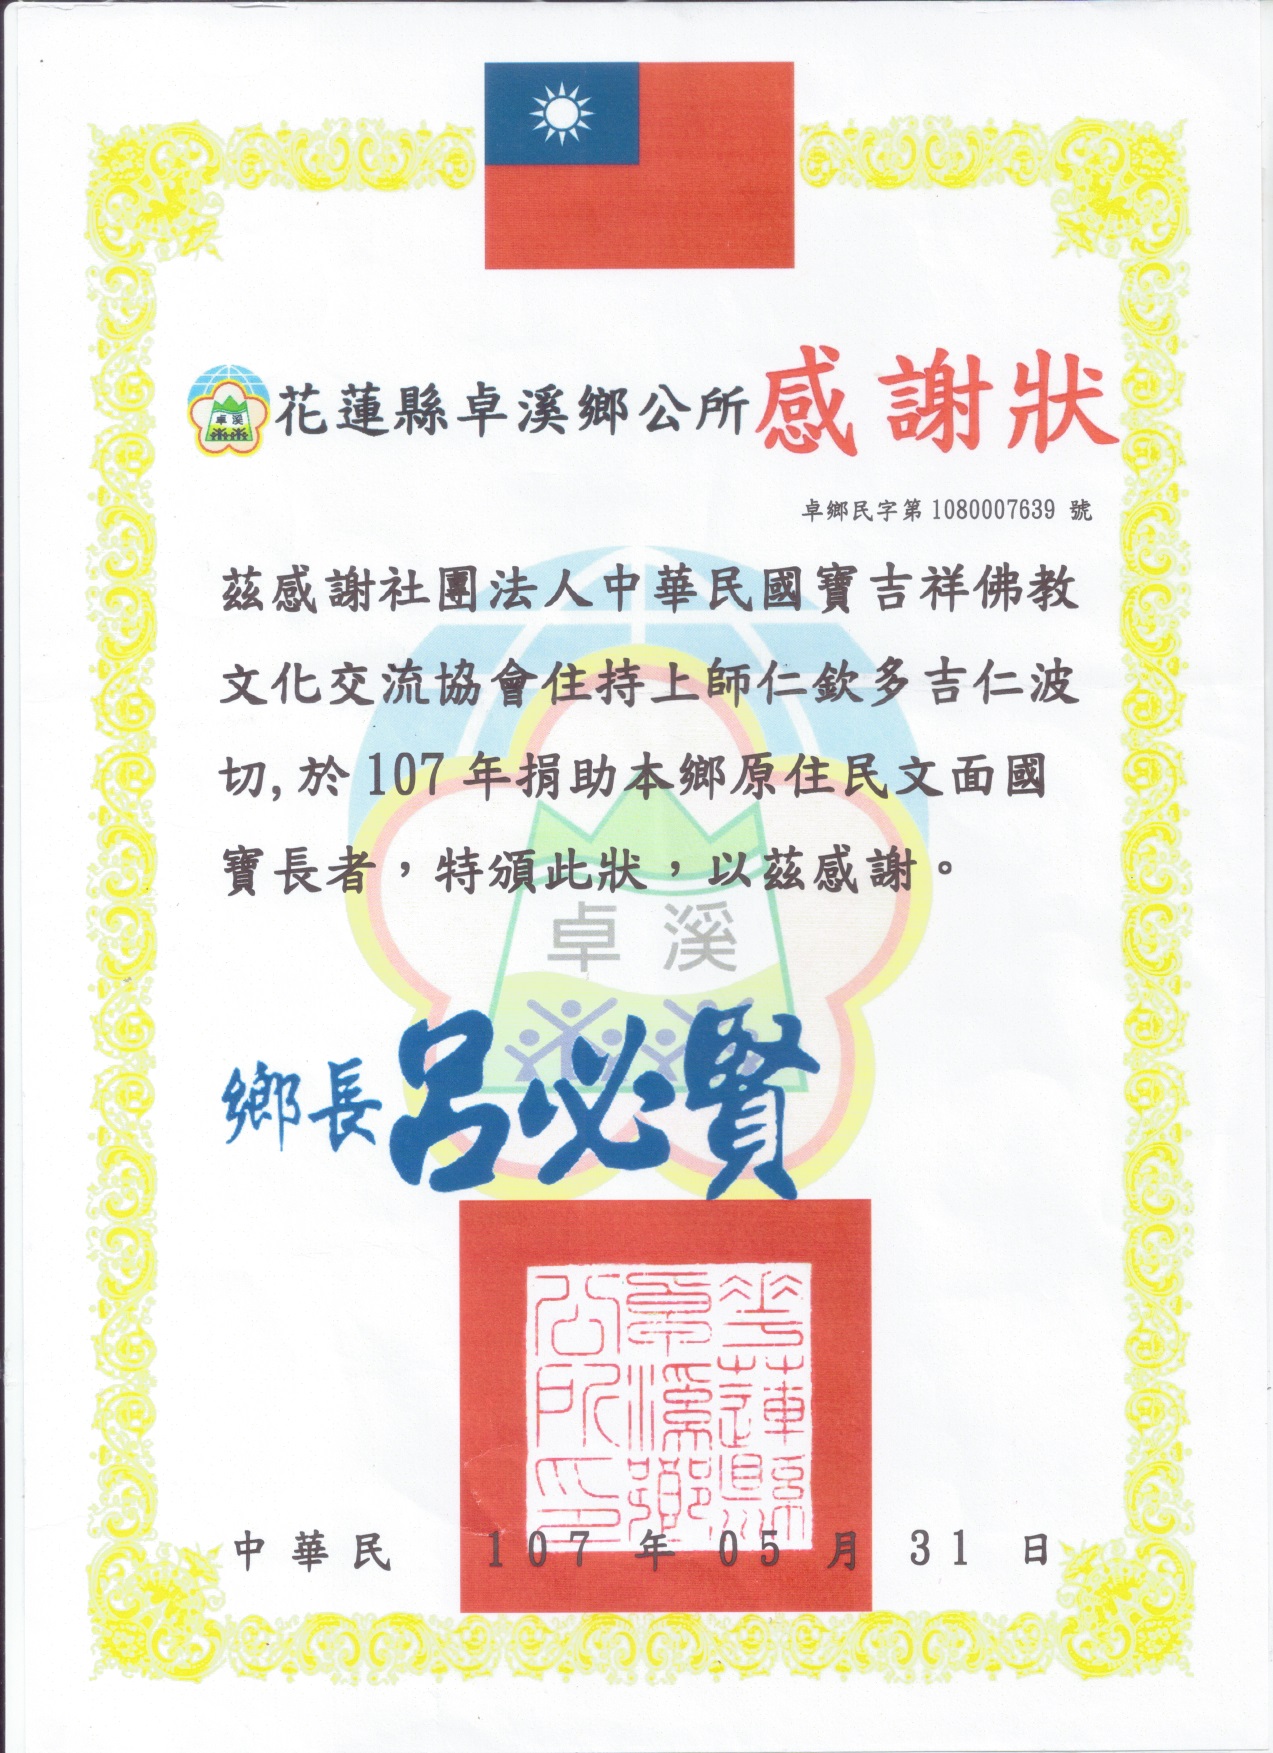 卓溪
花蓮縣卓溪鄉公所感謝狀
卓鄉民字第1080007639 號
茲感謝社團法人中華民國寶吉祥佛教
文化交流協會住持上師仁欽多吉仁波
切,於107年捐助本鄉原住民文面國
寶長者，特頒此狀，以茲感謝。
卓溪
鄉長呂必賢
花蓮縣
卓溪鄉
公所印
中華民 107 年 05 月 31 日